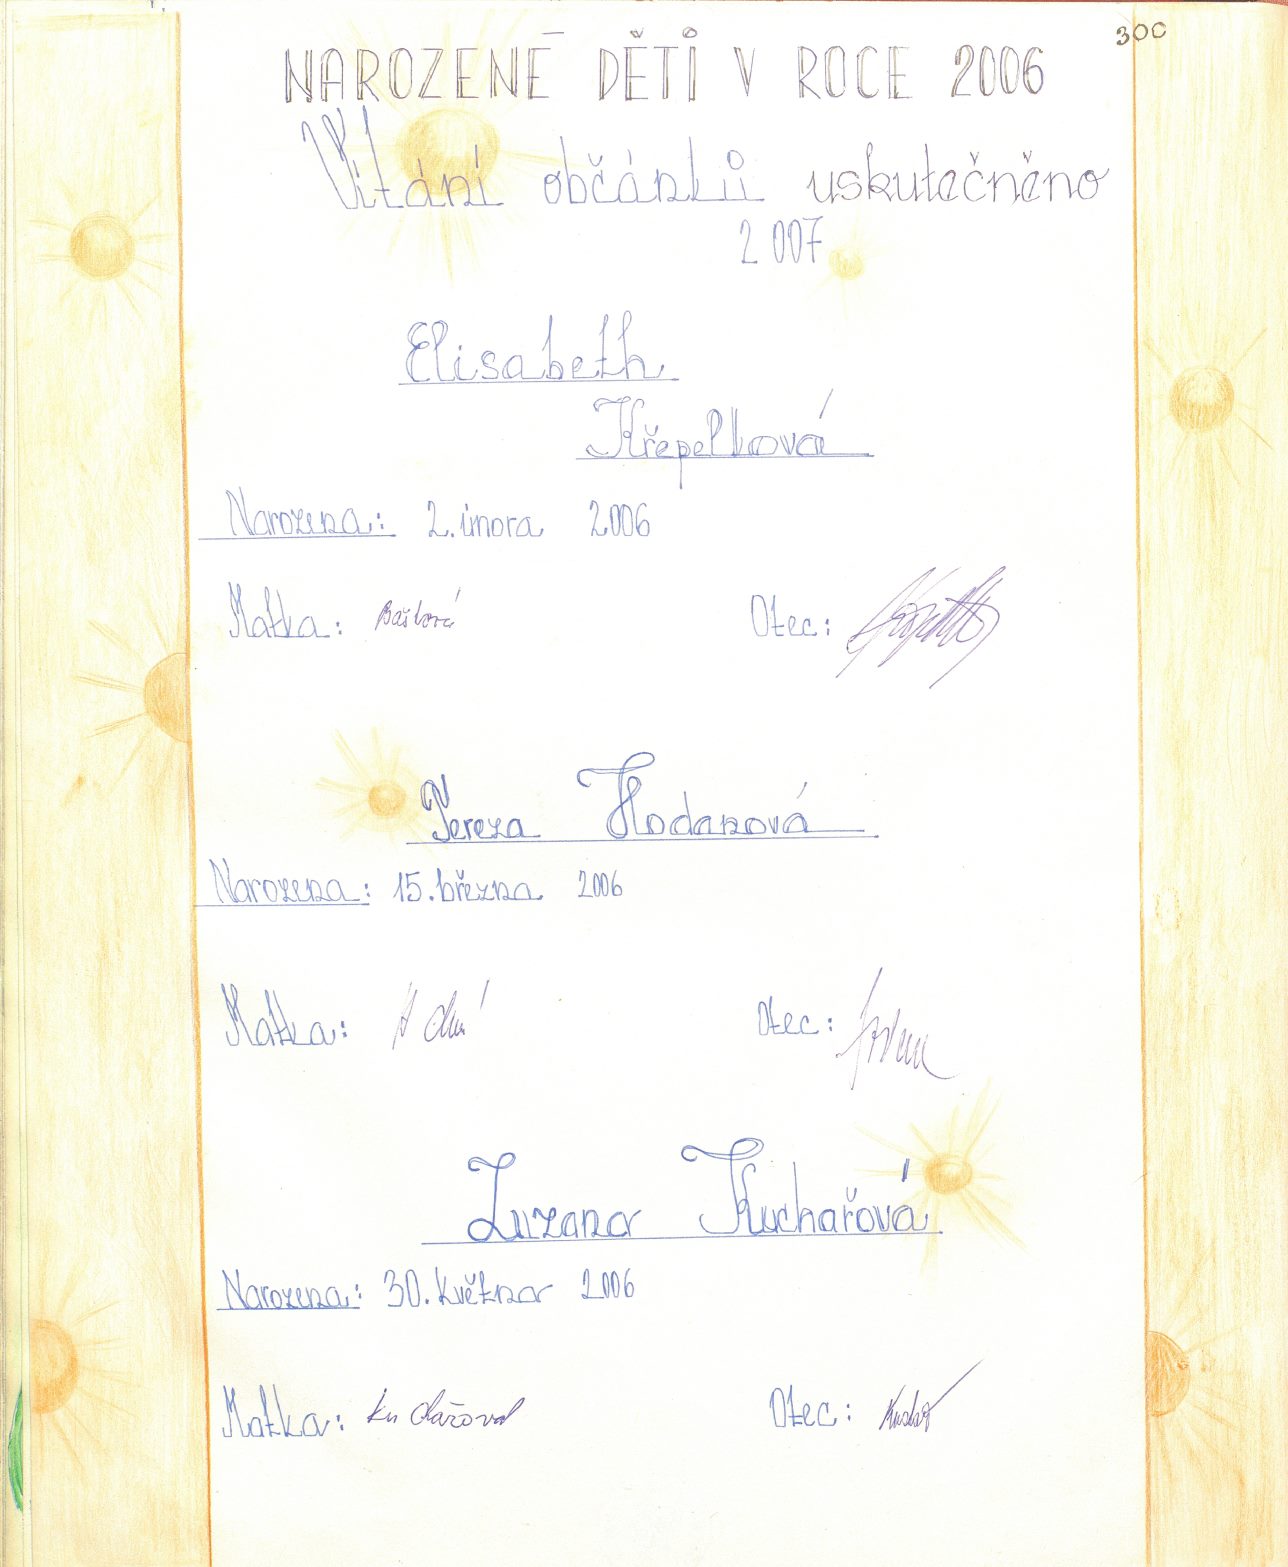 300
NAROZENÉ DĚTI V ROCE 2006
Vítání občánků uskutečněno
2007
Elisabeth
Křepelková
Narozena: 2. února 2006
Matka: Bařtová Otec:
Tereza Hodanová
Narozena: 15. března 2006
Matka: Otec:
Zuzana Kuchařová
Narozena: 30. května 2006
Matka: Kuchařová Otec: